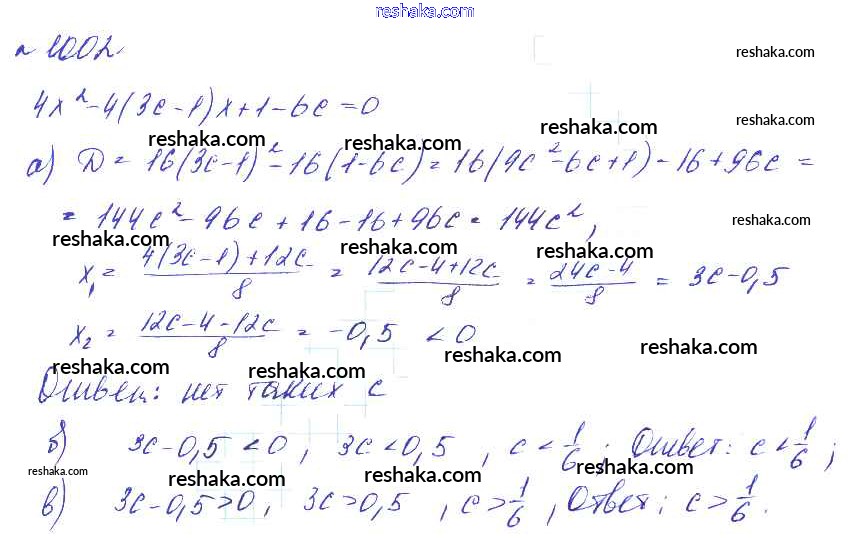 reshaka.com
n 1002.
reshaka.com
4x² - 4(3c-1)x + 1 - 6c = 0
reshaka.com reshaka.com reshaka.com
а) D = 16(3c-1)² - 16(1-6c) = 16(9c² - 6c + 1) - 16 + 96c =
= 144c² - 96c + 16 - 16 + 96c = 144c²,
reshaka.com
reshaka.com reshaka.com reshaka.com
x₁ = (4(3c-1)+12c)/8 = (12c-4+12c)/8 = (24c-4)/8 = 3c-0,5
x₂ = (12c-4-12c)/8 = -0,5 < 0
reshaka.com reshaka.com reshaka.com reshaka.com
Ответ: нет таких c
б) 3c-0,5 < 0, 3c < 0,5, c < 1/6; Ответ: c < 1/6;
reshaka.com reshaka.com reshaka.com reshaka.com
в) 3c-0,5 > 0, 3c > 0,5, c > 1/6, Ответ: c > 1/6.
reshaka.com reshaka.com reshaka.com reshaka.com